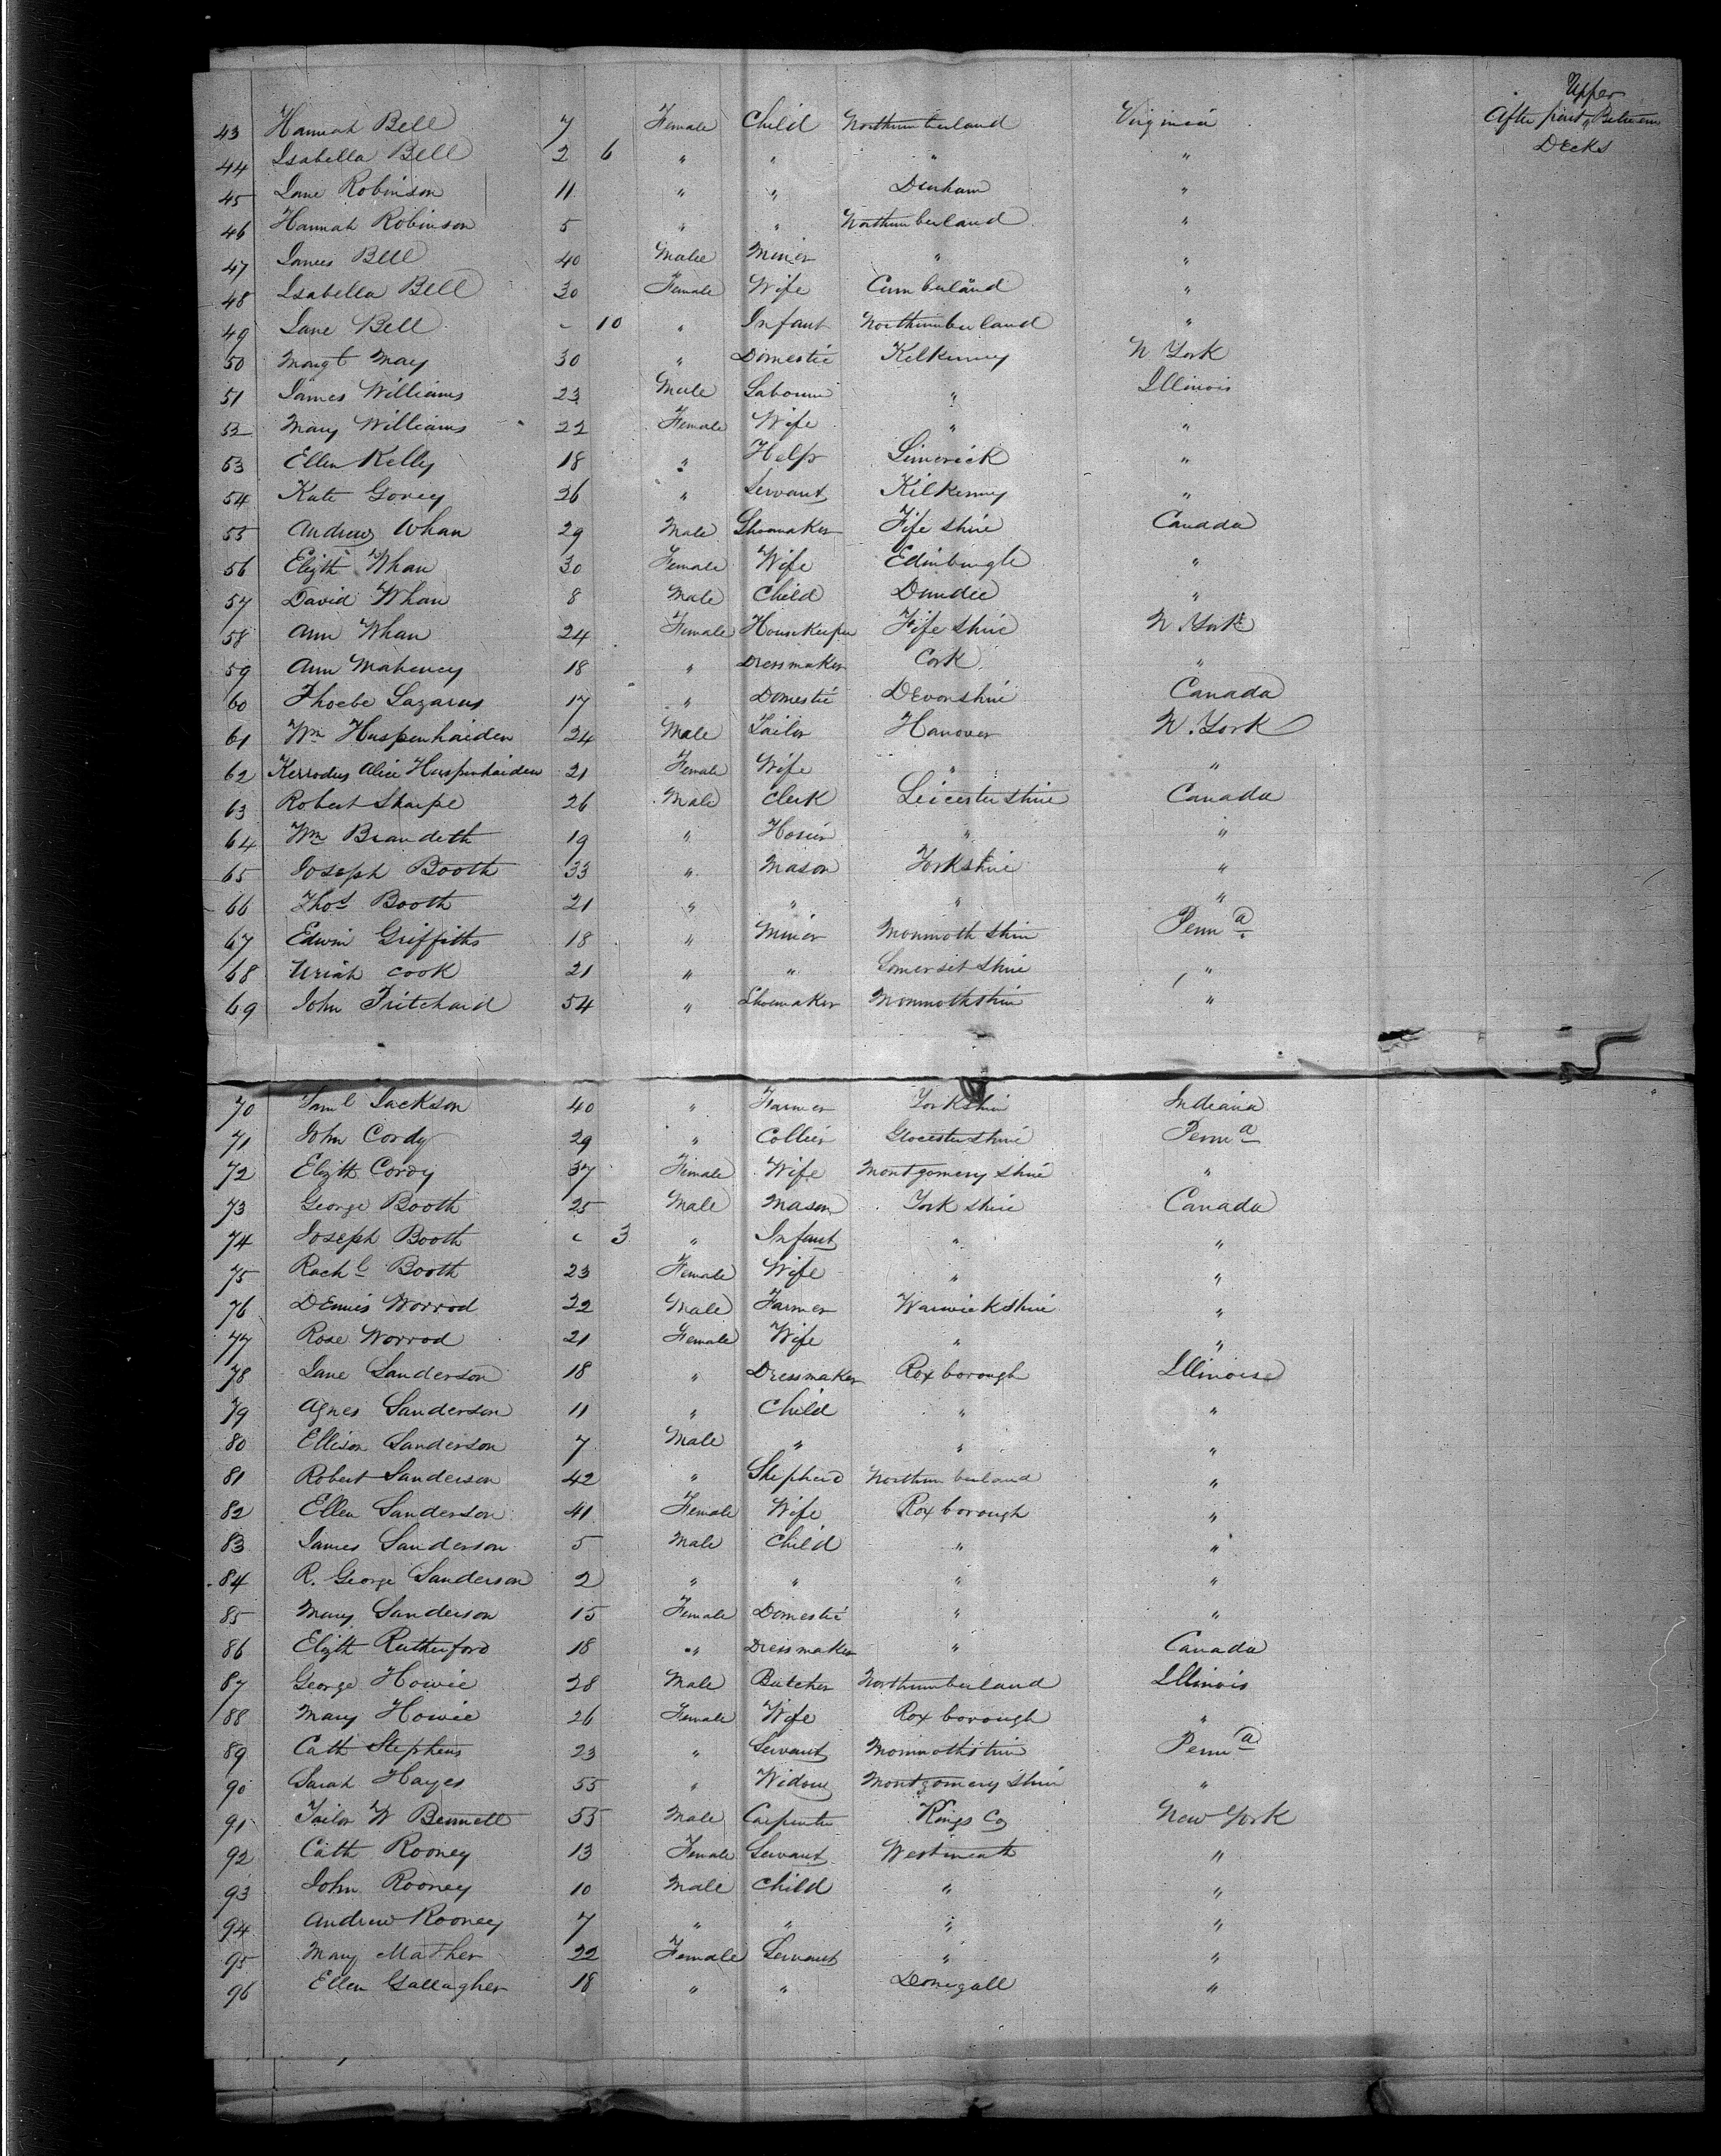 Upper
43 Hannah Bell 7 Female Child Northumberland Virginia After part „ Between
44 Isabella Bell 2 6 „ „ „ „ Decks
45 Jane Robinson 11 „ „ Durham „
46 Hannah Robinson 5 „ „ Northumberland „
47 James Bell 40 Male Miner „ „
48 Isabella Bell 30 Female Wife Cumberland „
49 Jane Bell - 10 „ Infant Northumberland „
50 Margt May 30 „ Domestic Kilkenny N York
51 James Williams 23 Male Labourer „ Illinois
52 Mary Williams 22 Female Wife „ „
53 Ellen Kelly 18 „ Help Limerick „
54 Kate Gorey 26 „ Servant Kilkenny „
55 Andrew Whan 29 Male Shoemaker Fifeshire Canada
56 Elizth Whan 30 Female Wife Edinburgh „
57 David Whan 8 Male Child Dundee „
58 Ann Whan 24 Female Housekeeper Fifeshire N. York
59 Ann Maheney 18 „ Dressmaker Cork „
60 Phoebe Lazarus 17 „ Domestic Devonshire Canada
61 Wm Huspenhaiden 24 Male Tailor Hanover N. York
62 Kerrodus Alice Huspenhaiden 21 Female Wife „ „
63 Robert Sharpe 26 Male Clerk Leicestershire Canada
64 Wm Brandeth 19 „ Hosier „ „
65 Joseph Booth 33 „ Mason Yorkshire „
66 Thos Booth 21 „ „ „ „
67 Edwin Griffiths 18 „ Miner Monmothshire Penna
68 Uriah Cook 21 „ „ Somersetshire „
69 John Pritchard 54 „ Shoemaker Monmothshire „
70 Saml Jackson 40 „ Farmer Yorkshire Indiana
71 John Cordy 29 „ Collier Glocestershire Penna
72 Elizth Cordy 37 Female Wife Montgomeryshire „
73 George Booth 25 Male Mason Yorkshire Canada
74 Joseph Booth - 3 „ Infant „ „
75 Rachl Booth 23 Female Wife „ „
76 Dennis Worrod 22 Male Farmer Warwickshire „
77 Rose Worrod 21 Female Wife „ „
78 Jane Sanderson 18 „ Dressmaker Roxborough Illinoise
79 Agnes Sanderson 11 „ Child „ „
80 Ellison Sanderson 7 Male „ „ „
81 Robert Sanderson 42 „ Shepherd Northumberland „
82 Ellen Sanderson 41 Female Wife Roxborough „
83 James Sanderson 5 Male Child „ „
84 R. George Sanderson 2 „ „ „ „
85 Mary Sanderson 15 Female Domestic „ „
86 Elizth Rutherford 18 „ Dressmaker „ Canada
87 George Howie 28 Male Butcher Northumberland Illinois
88 Mary Howie 26 Female Wife Roxborough „
89 Cath Stephens 23 „ Servant Monmothshire Penna
90 Sarah Hayes 55 „ Widow Montgomeryshire „
91 Tailor W Bennett 55 Male Carpenter Kings Co New York
92 Cath Rooney 13 Female Servant Westmeath „
93 John Rooney 10 Male Child „ „
94 Andrew Rooney 7 „ „ „ „
95 Mary Mather 22 Female Servant „ „
96 Ellen Gallagher 18 „ „ Donegall „